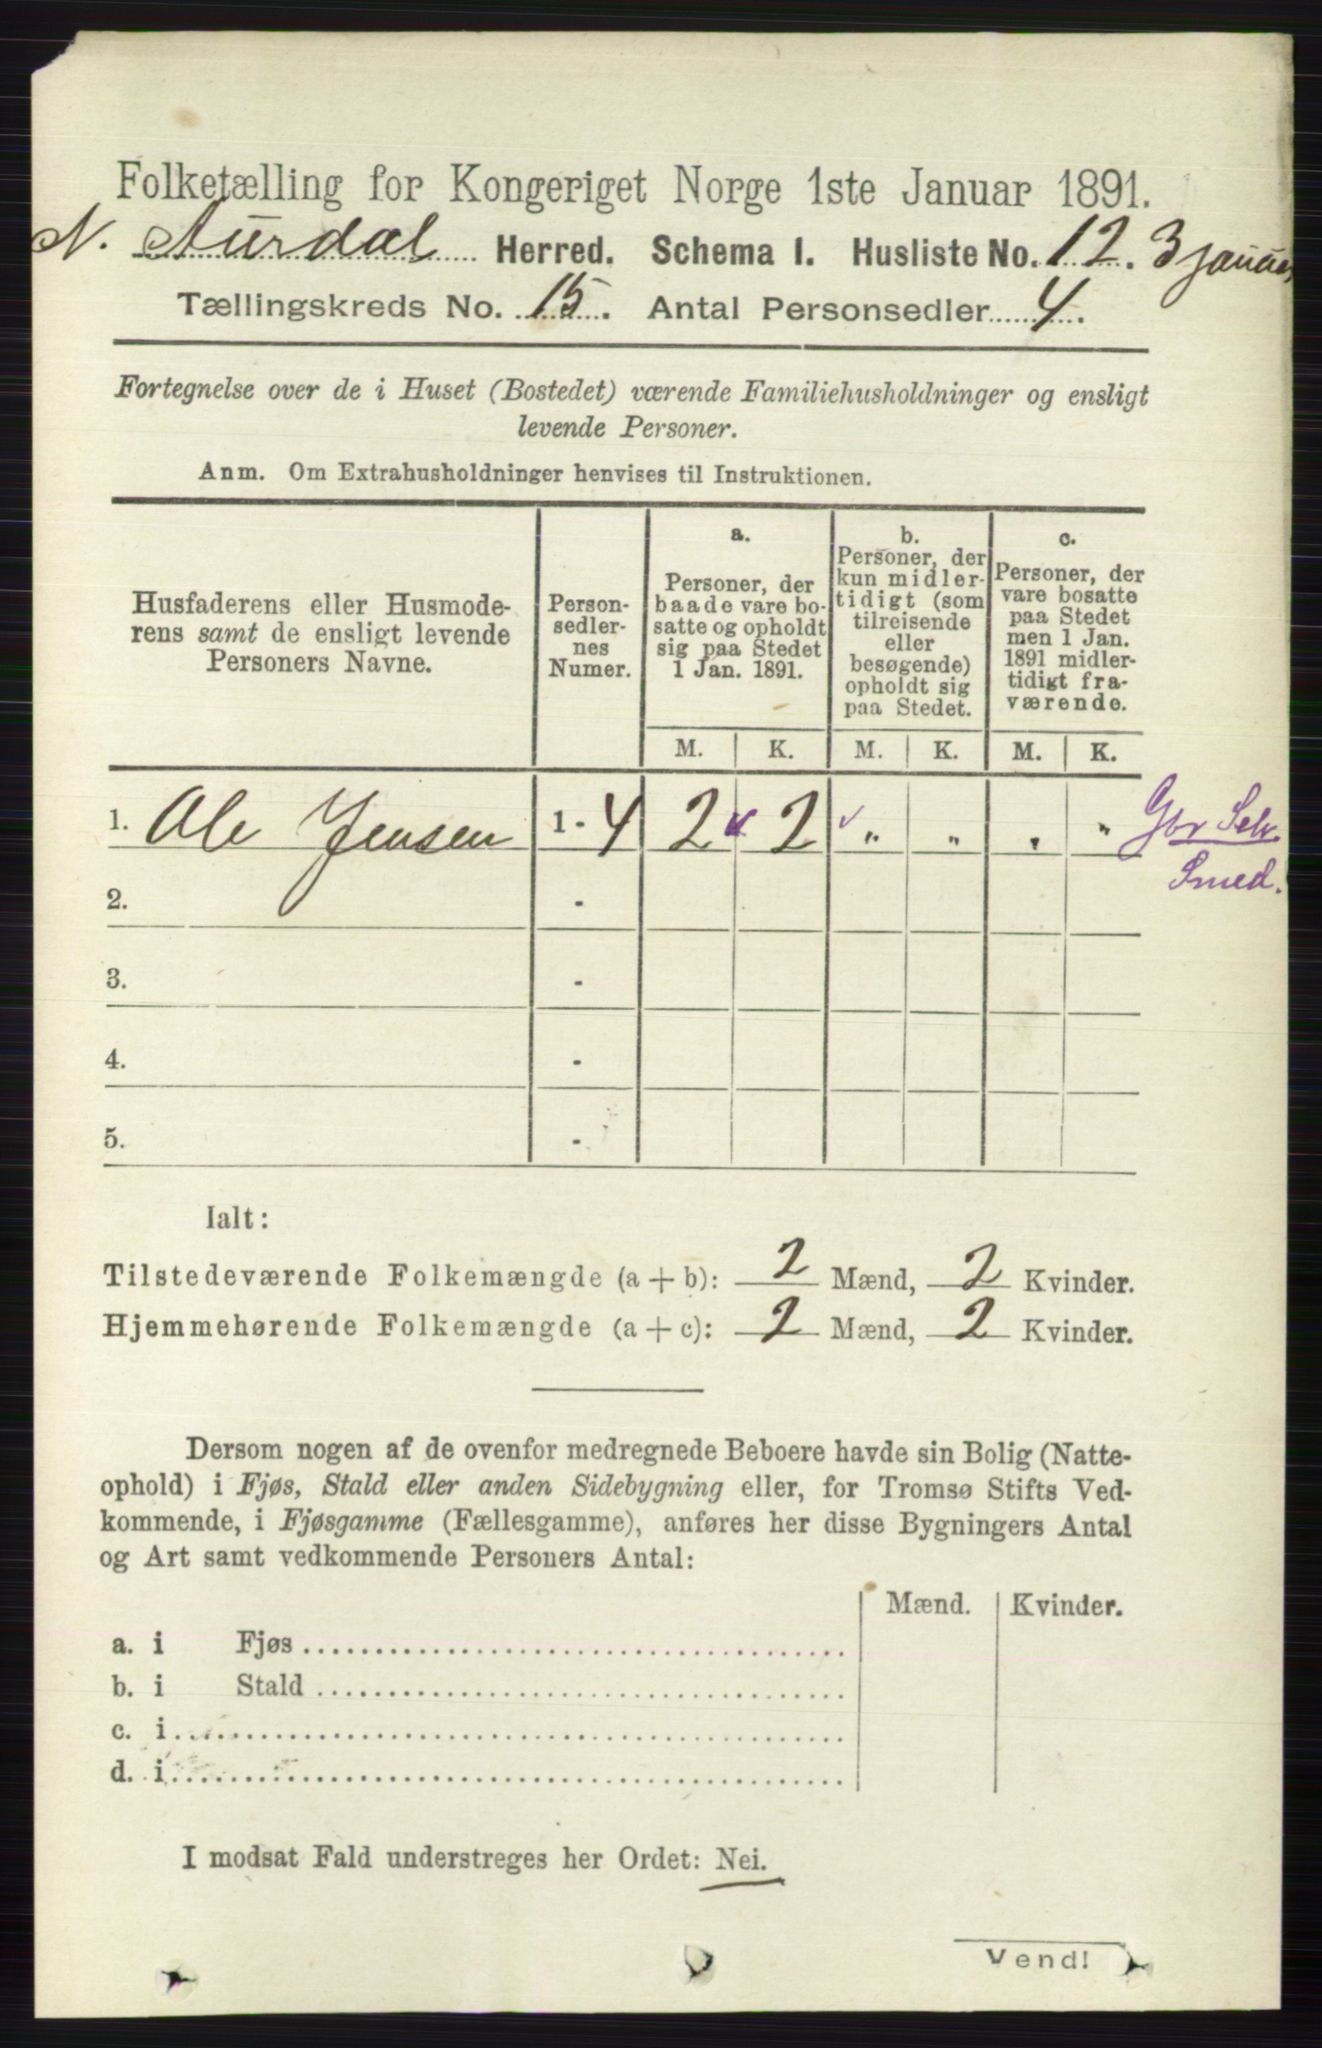 Folketælling for Kongeriget Norge 1ste Januar 1891.
N. Aurdal Herred. Schema I. Husliste No. 12. 3 januar
Tællingskreds No. 15. Antal Personsedler 4.
Fortegnelse over de i Huset (Bostedet) værende Familiehusholdninger og ensligt
levende Personer.
Anm. Om Extrahusholdninger henvises til Instruktionen.
Husfaderens eller Husmode-
rens samt de ensligt levende
Personers Navne.
Person-
sedler-
nes
Numer.
a.
Personer, der
baade vare bo-
satte og opholdt
sig paa Stedet
1 Jan. 1891.
b.
Personer, der
kun midler-
tidigt (som
tilreisende
eller
besøgende)
opholdt sig
paa Stedet.
c.
Personer, der
vare bosatte
paa Stedet
men 1 Jan.
1891 midler-
tidigt fra-
værende.
M. K. M. K. M. K.
1. Ole Jensen 1 - 4 2 2 „ „ „ „ Gbr Selv.
Smed.
2. -
3. -
4. -
5. -
Ialt:
Tilstedeværende Folkemængde (a + b): 2 Mænd, 2 Kvinder.
Hjemmehørende Folkemængde (a + c): 2 Mænd, 2 Kvinder.
Dersom nogen af de ovenfor medregnede Beboere havde sin Bolig (Natte-
ophold) i Fjøs, Stald eller anden Sidebygning eller, for Tromsø Stifts Ved-
kommende, i Fjøsgamme (Fællesgamme), anføres her disse Bygningers Antal
og Art samt vedkommende Personers Antal:
Mænd. Kvinder.
a. i Fjøs
b. i Stald
c. i
d. i
I modsat Fald understreges her Ordet: Nei.
Vend!